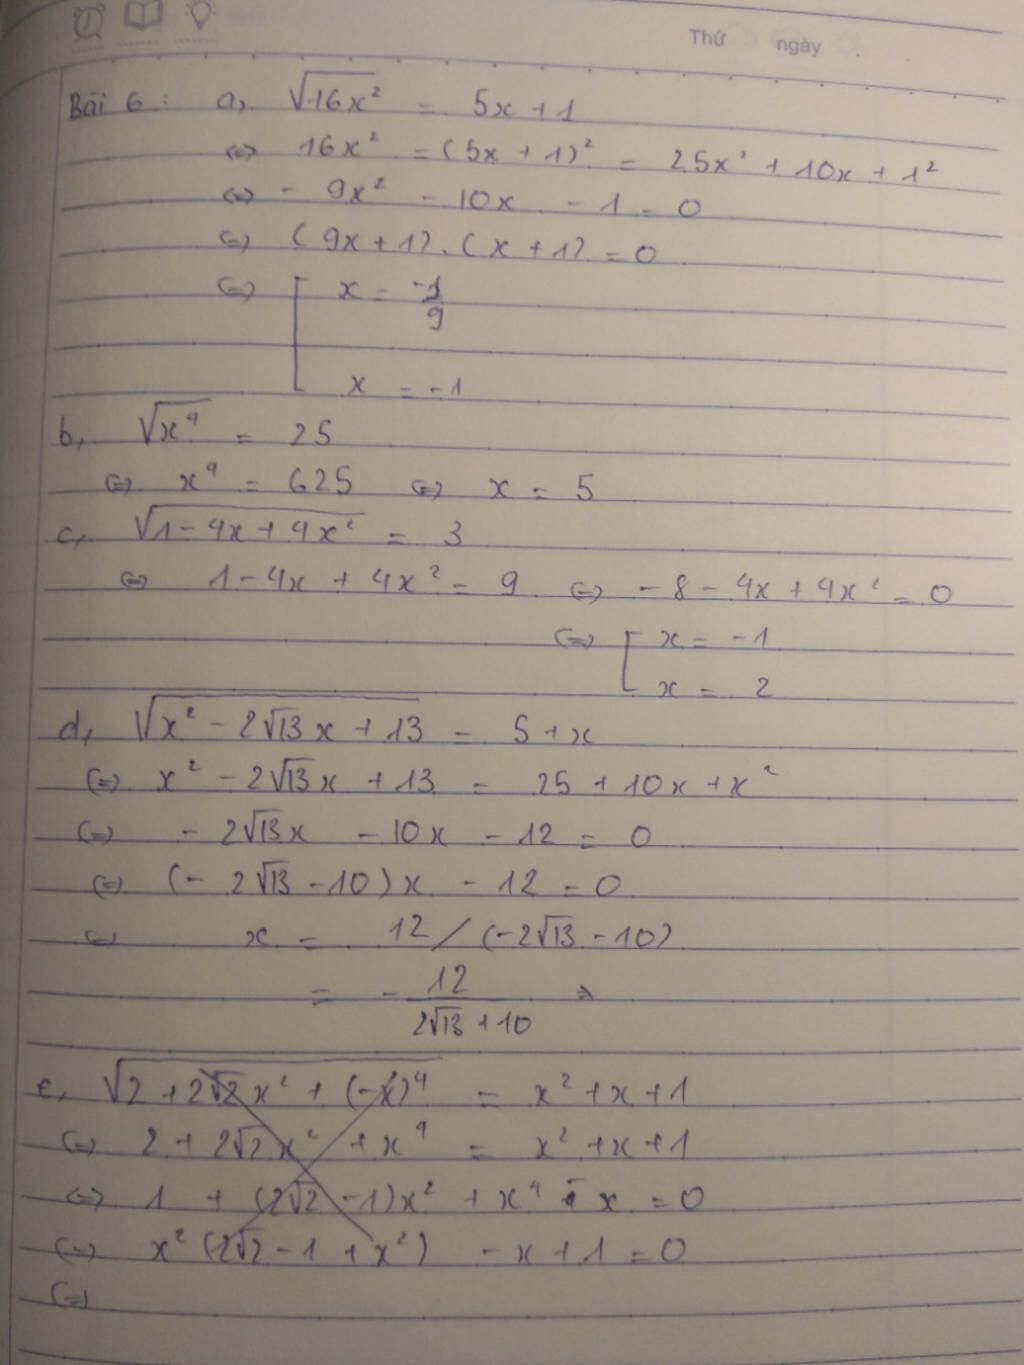 Thứ ngày
Bài 6 : a, √16x² = 5x + 1
⇔ 16x² = (5x + 1)² = 25x² + 10x + 1²
⇔ - 9x² - 10x - 1 = 0
⇔ (9x + 1).(x + 1) = 0
⇔ [ x = -1/9
x = -1
b, √x⁴ = 25
⇔ x⁴ = 625 ⇔ x = 5
c, √1 - 4x + 4x² = 3
⇔ 1 - 4x + 4x² = 9 ⇔ - 8 - 4x + 4x² = 0
⇔ [ x = -1
x = 2
d, √x² - 2√13x + 13 = 5 + x
⇔ x² - 2√13x + 13 = 25 + 10x + x²
⇔ - 2√13x - 10x - 12 = 0
⇔ (- 2√13 - 10)x - 12 = 0
⇔ x = 12 / (-2√13 - 10)
= - 12/(2√13 + 10) ⇒
e, √2 + 2√2x² + (-x)⁴ = x² + x + 1
⇔ 2 + 2√2x² + x⁴ = x² + x + 1
⇔ 1 + (2√2 - 1)x² + x⁴ - x = 0
⇔ x² (2√2 - 1 + x²) - x + 1 = 0
⇔